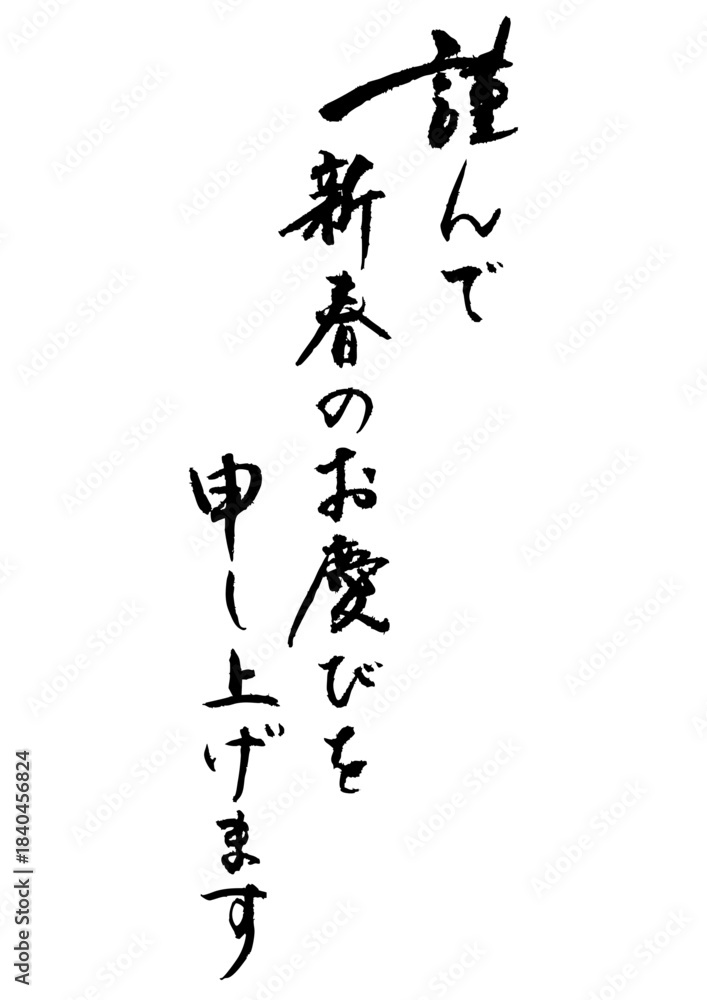 謹んで
新春のお慶びを
申し上げます
Adobe Stock | #1840456824